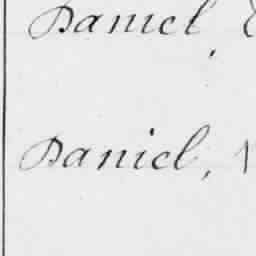 Daniel,
Daniel,